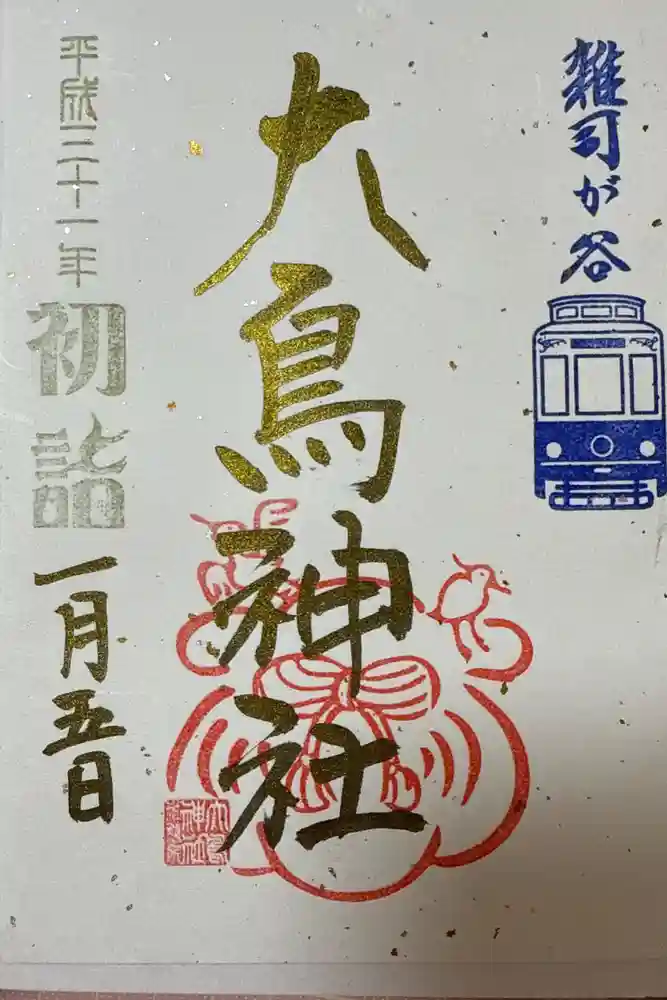 雑司が谷
大鳥神社
平成三十一年
初詣
一月五日